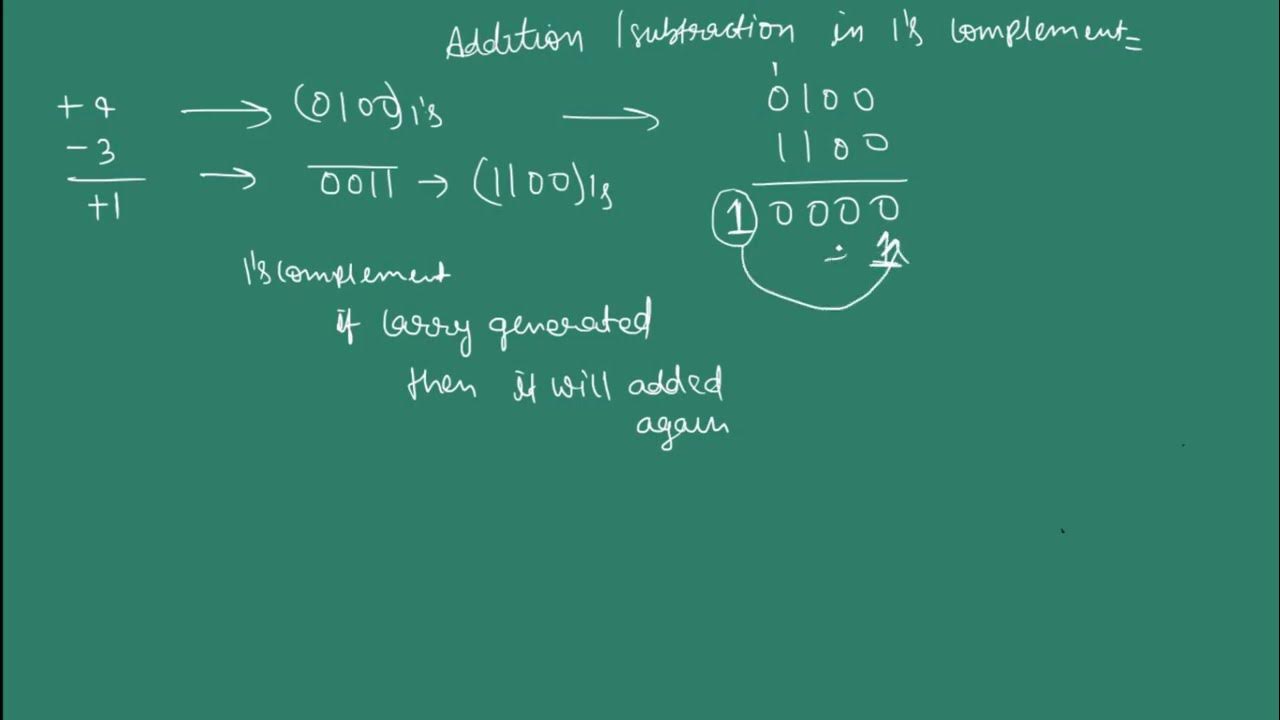 Addition /subtraction in 1's complement=
+4 → (0100)1's →
-3 → 0011 → (1100)1s
+1
1
0100
1100
1 0000
1's complement
if carry generated
then it will added
again